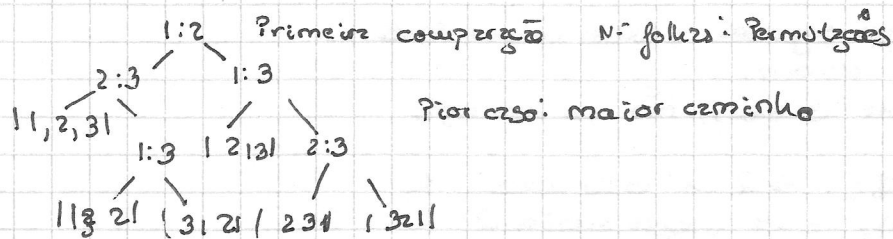 1:2 Primeira comparação Nº folhas: Permutações
2:3 1:3
|1,2,3| Pior caso: maior caminho
1:3 |213| 2:3
|132| |312| |231| |321|